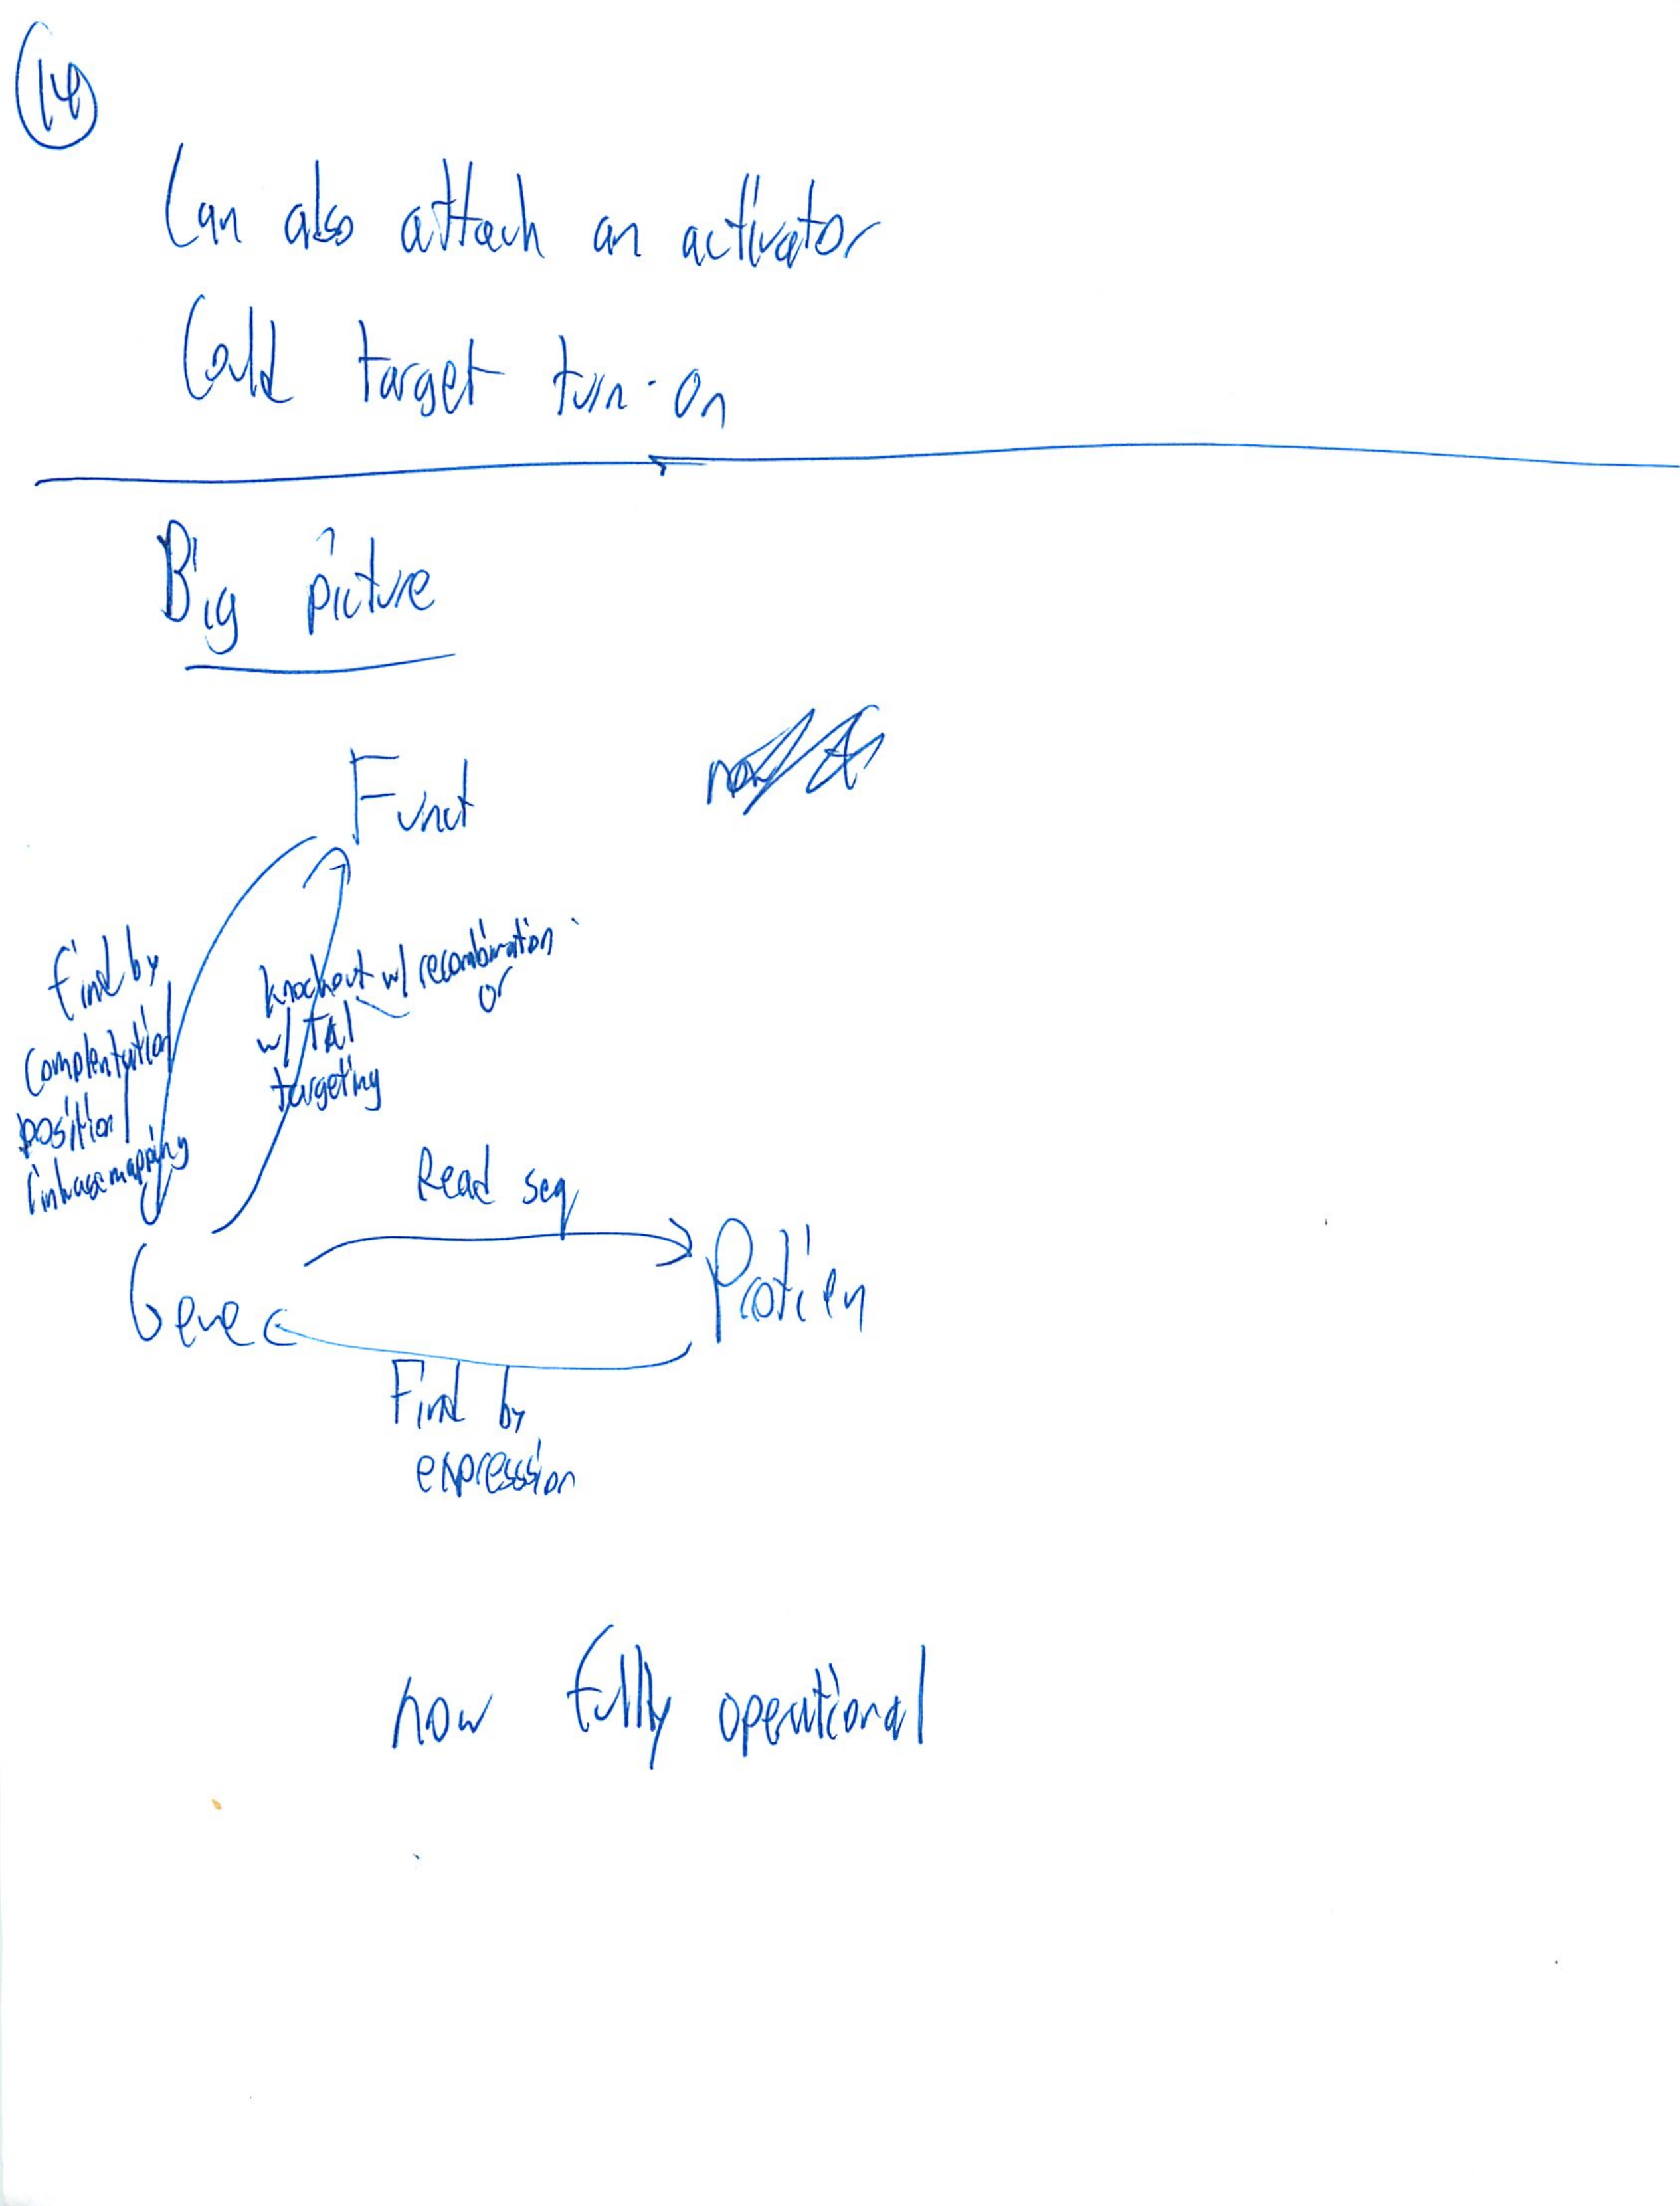 14
Can also attach an activator
Could target turn-on
Big picture
Funct
find by
complentation
position
linkage mapping
knockout w/ recombination
or
w/ Tal
targeting
Read seq
Gene
Protien
Find by
expression
now fully operational